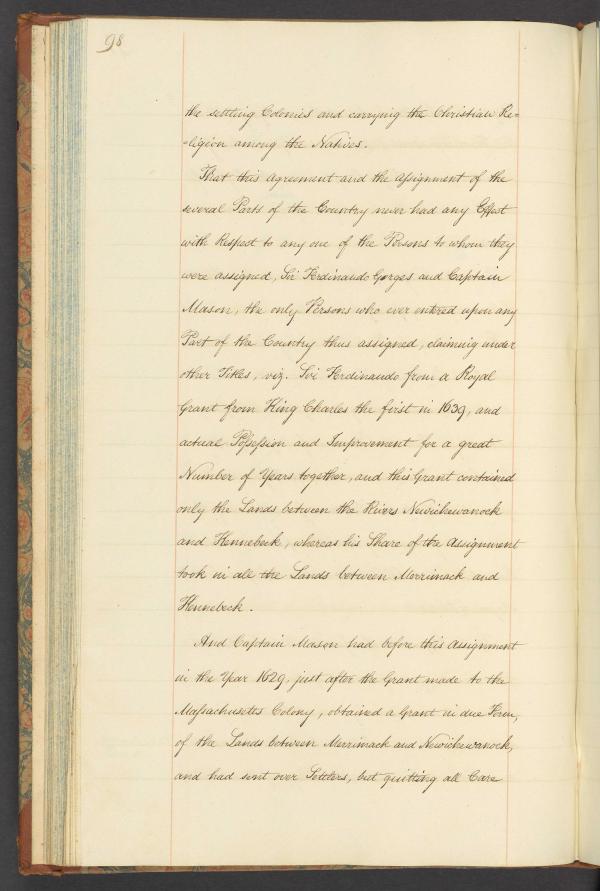 98
the settling Colonies and carrying the Christian Re=
=ligion among the Natives.
That this agreement and the assignment of the
several Parts of the Country never had any Effect
with Respect to any one of the Persons to whom they
were assigned, Sir Ferdinando Gorges and Captain
Mason, the only Persons who ever entered upon any
Part of the Country thus assigned, claiming under
other Titles, viz. Sir Ferdinando from a Royal
Grant from King Charles the first in 1639, and
actual Possession and Improvement for a great
Number of Years together, and this Grant contained
only the Lands between the Rivers Newichewanock
and Kennebeck, whereas his Share of the Assignment
took in all the Lands between Merrimack and
Kennebeck.
And Captain Mason had before this Assignment
in the Year 1629, just after the Grant made to the
Massachusetts Colony, obtained a Grant in due Form,
of the Lands between Merrimack and Newichewanock,
and had sent over Settlers, but quitting all Care